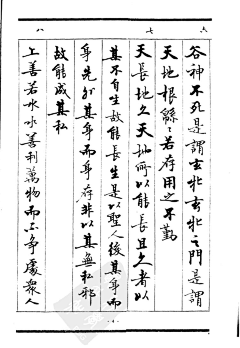 六
谷神不死是謂玄牝玄牝之門是謂
天地根綿綿若存用之不勤
七
天長地久天地所以能長且久者以
其不自生故能長生是以聖人後其身而
身先外其身而身存非以其無私邪
故能成其私
八
上善若水水善利萬物而不爭處衆人